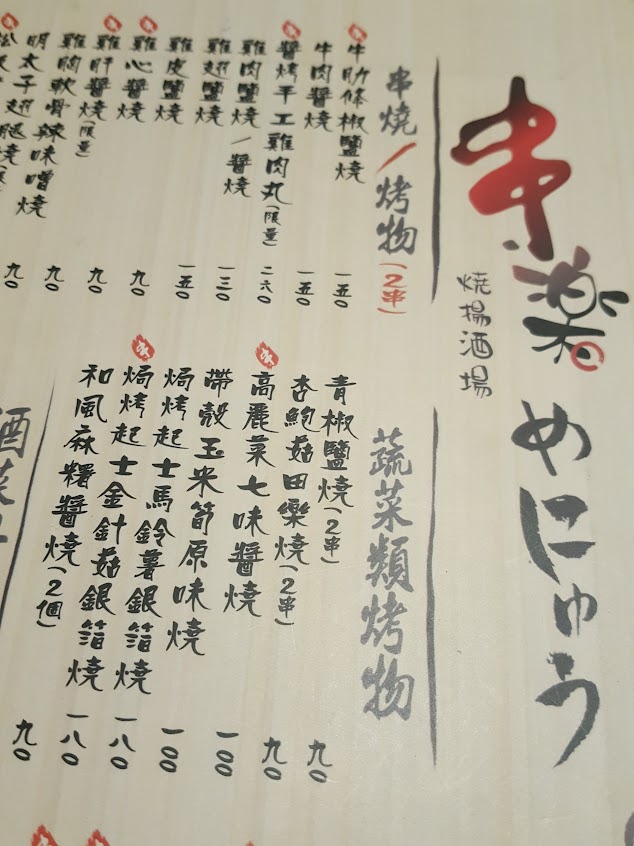 串楽
燒揚酒場
めにゅう
串燒/烤物(2串)
牛肋條椒鹽燒 一五０
牛肉醬燒 一五０
醬烤手工雞肉丸(限量) 二六０
雞肉鹽燒/醬燒 一三０
雞翅鹽燒 一五０
雞皮鹽燒 九０
雞心醬燒 九０
雞肝醬燒(限量) 九０
雞胸軟骨辣味噌燒 九０
明太子翅腿燒
蔬菜類烤物
青椒鹽燒(2串) 九０
杏鮑菇田樂燒(2串) 九０
高麗菜七味醬燒 一００
帶殼玉米筍原味燒 一００
焗烤起士馬鈴薯銀箔燒 一八０
焗烤起士金針菇銀箔燒 一八０
和風麻糬醬燒(2個) 九０
酒菜